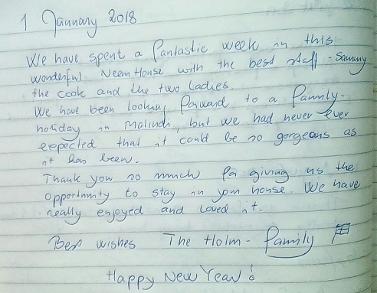 1 January 2018
We have spent a fantastic week in this
wonderful Neem House with the best staff - Sammy
the cook and the two ladies.
We have been looking forward to a family-
holiday in Malindi, but we had never ever
expected that it could be so gorgeous as
it has been.
Thank you so much for giving us the
opportunity to stay in your house. We have
really enjoyed and loved it.
Best wishes The Holm-family
Happy New Year!